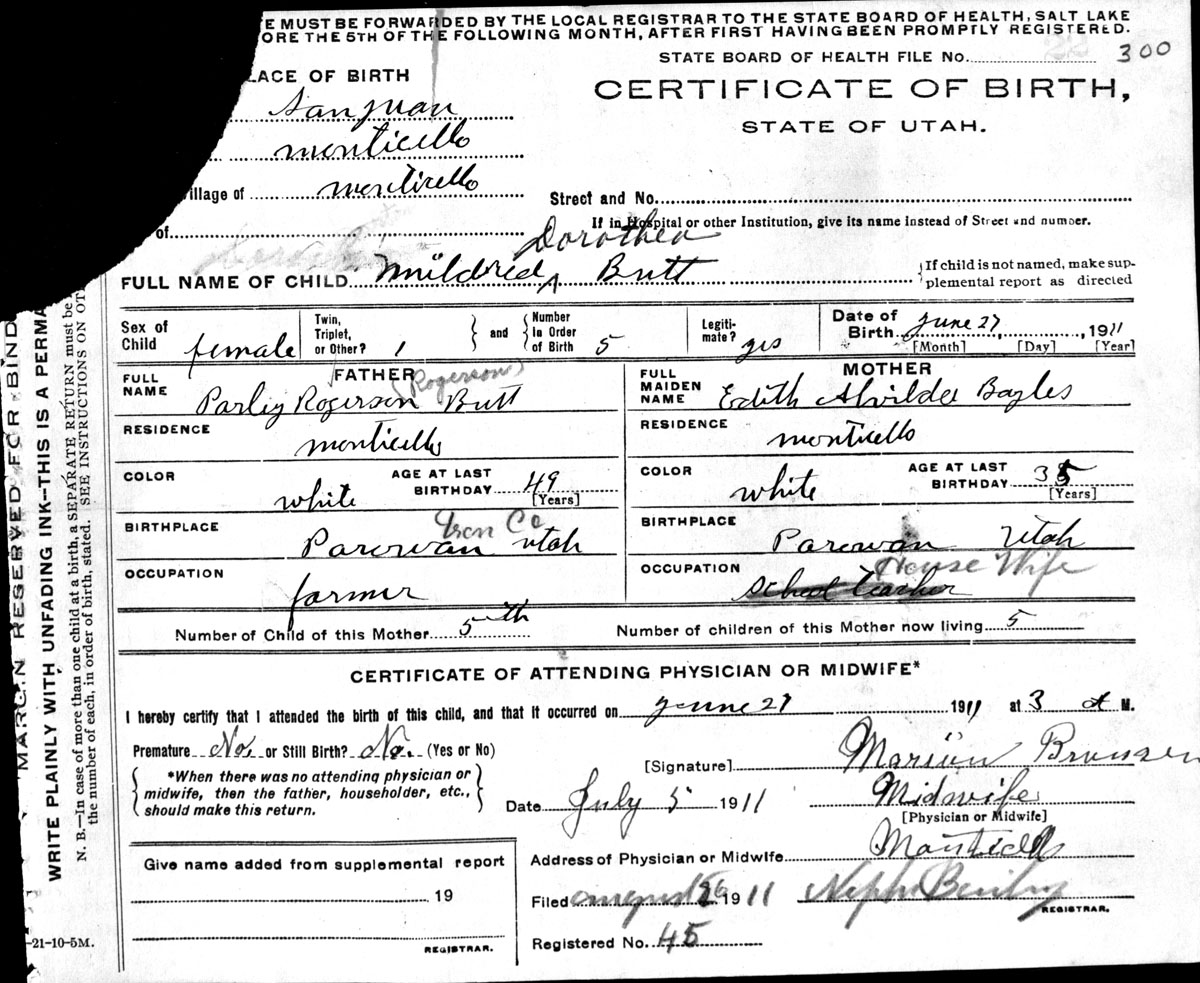 E MUST BE FORWARDED BY THE LOCAL REGISTRAR TO THE STATE BOARD OF HEALTH, SALT LAKE
ORE THE 5TH OF THE FOLLOWING MONTH, AFTER FIRST HAVING BEEN PROMPTLY REGISTERED.
STATE BOARD OF HEALTH FILE No. 300
LACE OF BIRTH
CERTIFICATE OF BIRTH,
STATE OF UTAH.
San Juan
monticello
illage of monticello
Street and No.
of
If in Hospital or other Institution, give its name instead of Street and number.
Dorothea
FULL NAME OF CHILD Mildred ^ Butt
If child is not named, make sup-
plemental report as directed
Sex of Child female
Twin, Triplet, or Other? 1
and
Number in Order of Birth 5
Legiti-mate? yes
Date of Birth June 27, 1911
[Month] [Day] [Year]
FATHER
(Rogerson)
FULL NAME Parley Rogerson Butt
RESIDENCE
monticello
COLOR white
AGE AT LAST BIRTHDAY 49
[Years]
BIRTHPLACE
Iron Co
Parowan Utah
OCCUPATION
farmer
MOTHER
FULL MAIDEN NAME Edith Alvilda Bayles
RESIDENCE
monticello
COLOR white
AGE AT LAST BIRTHDAY 35
[Years]
BIRTHPLACE
Parowan Utah
OCCUPATION House Wife
School teacher
Number of Child of this Mother 5th
Number of children of this Mother now living 5
CERTIFICATE OF ATTENDING PHYSICIAN OR MIDWIFE*
I hereby certify that I attended the birth of this child, and that it occurred on June 27 1911 at 3 a M.
Premature No. or Still Birth? No. (Yes or No)
*When there was no attending physician or
midwife, then the father, householder, etc.,
should make this return.
[Signature] Marion Bronson
Date July 5 1911
Midwife
[Physician or Midwife]
Address of Physician or Midwife Monticello
Give name added from supplemental report
19
REGISTRAR.
Filed august 26 1911
REGISTRAR.
Registered No. 45
-21-10-5M.
MARGIN RESERVED FOR BIND
WRITE PLAINLY WITH UNFADING INK—THIS IS A PERMA
N. B.—In case of more than one child at a birth, a SEPARATE RETURN must be
the number of each, in order of birth, stated. SEE INSTRUCTIONS ON OT